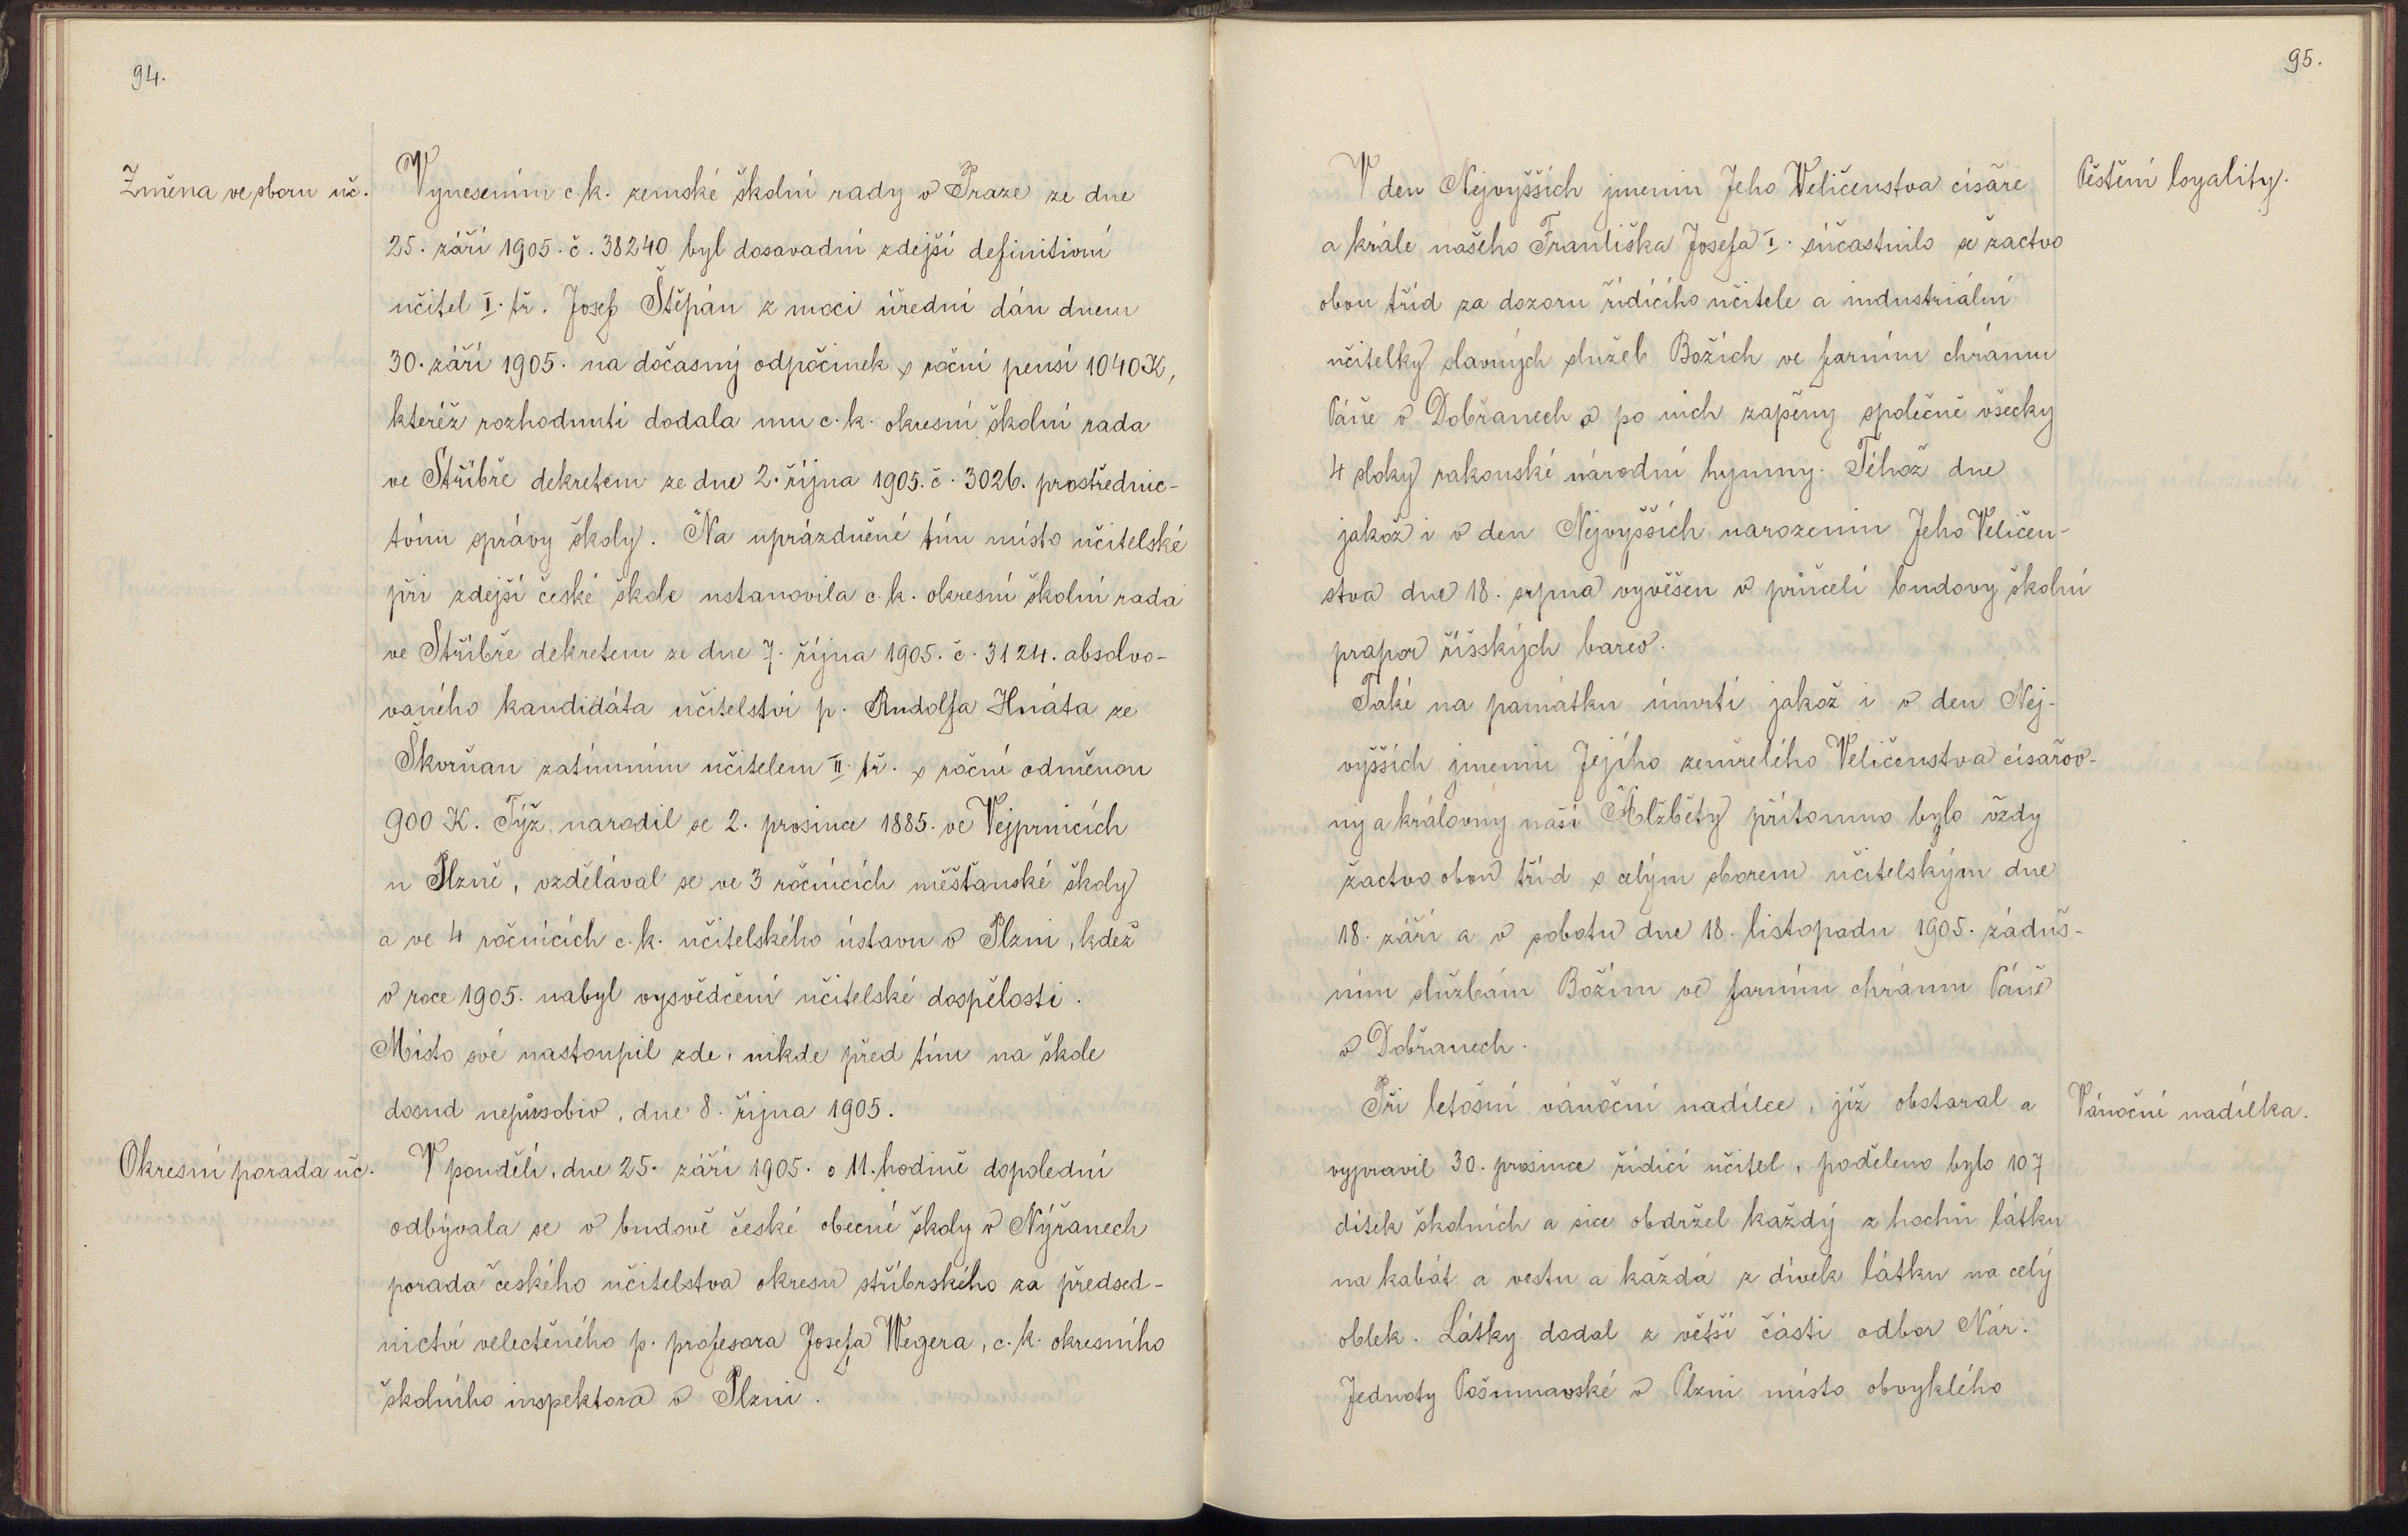 94.
Změna ve sboru uč.
Vynesením c. k. zemské školní rady v Praze ze dne
25. září 1905. č. 38240 byl dosavadní zdejší definitivní
učitel I. tř. Josef Štěpán z moci úřední dán dnem
30. září 1905. na dočasný odpočinek s roční pensí 1040 K,
kteréž rozhodnutí dodala mu c. k. okresní školní rada
ve Stříbře dekretem ze dne 2. října 1905. č. 3026. prostřednic-
tvím správy školy. Na uprázdněné tím místo učitelské
při zdejší české škole ustanovila c. k. okresní školní rada
ve Stříbře dekretem ze dne 7. října 1905. č. 3124. absolvo-
vaného kandidáta učitelství p. Rudolfa Hnáta ze
Škvrňan zatímním učitelem II. tř. s roční odměnou
900 K. Týž narodil se 2. prosince 1885. ve Vejprnicích
u Plzně, vzdělával se ve 3 ročnících měšťanské školy
a ve 4 ročnících c. k. učitelského ústavu v Plzni, kdež
v roce 1905. nabyl vysvědčení učitelské dospělosti.
Místo své nastoupil zde, nikde před tím na škole
dosud nepůsobiv, dne 8. října 1905.
Okresní porada uč.
V pondělí, dne 25. září 1905. o 11. hodině dopolední
odbývala se v budově české obecné školy v Nýřanech
porada českého učitelstva okresu stříbrského za předsed-
nictví velectěného p. profesora Josefa Wegera, c. k. okresního
školního inspektora v Plzni.
95.
Pěstění loyality.
V den Nejvyšších jmenin Jeho Veličenstva císaře
a krále našeho Františka Josefa I. súčastnilo se žactvo
obou tříd za dozoru řídícího učitele a industriální
učitelky slavných služeb Božích ve farním chrámu
Páně v Dobřanech a po nich zapěny společně všecky
4 sloky rakouské národní hymny. Téhož dne
jakož i v den Nejvyšších narozenin Jeho Veličen-
stva dne 18. srpna vyvěšen v průčelí budovy školní
prapor říšských barev.
Také na památku úmrtí jakož i v den Nej-
vyšších jmenin Jejího zemřelého Veličenstva císařov-
ny a královny naší Alžběty přítomno bylo vždy
žactvo obou tříd s celým sborem učitelským dne
18. září a v sobotu dne 18. listopadu 1905. záduš-
ním službám Božím ve farním chrámu Páně
v Dobřanech.
Vánoční nadílka.
Při letošní vánoční nadílce, již obstaral a
vypravil 30. prosince řídící učitel, poděleno bylo 107
dítek školních a sice obdržel každý z hochů látku
na kabát a vestu a každá z dívek látku na celý
oblek. Látky dodal z větší části odbor Nár.
Jednoty Pošumavské v Plzni místo obvyklého